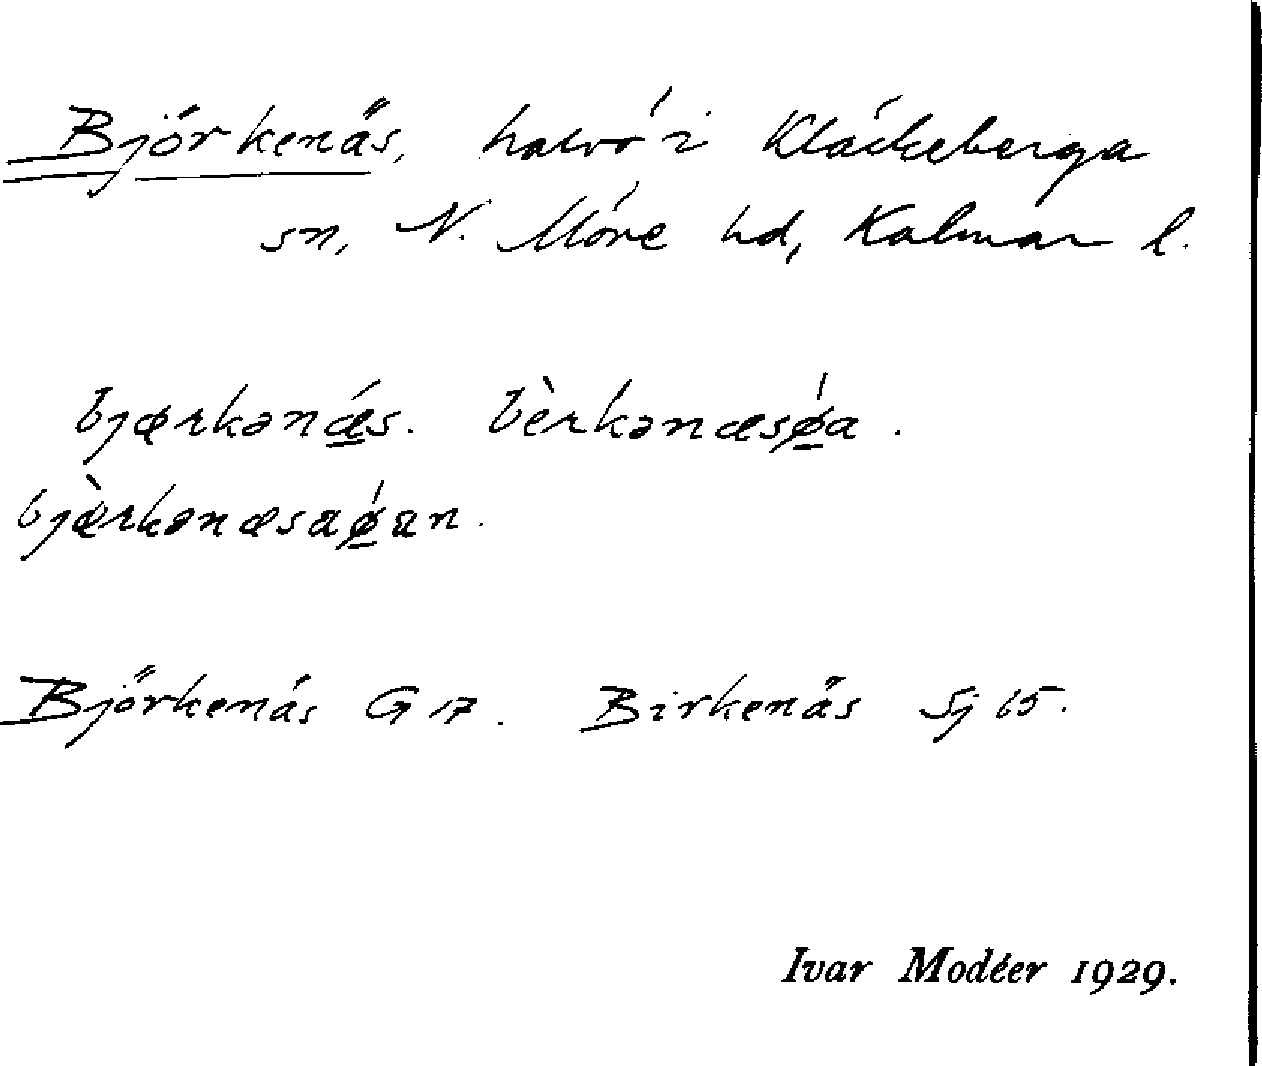 Björkenäs, halvö i Kläckeberga
sn, N. Möre hd, Kalmar l.
bjærkənǽs. bèrkənæsǿa.
bjæ̀rkənæsaǿan.
Björkenäs G 17. Birkenäs Sj 15.
Ivar Modéer 1929.